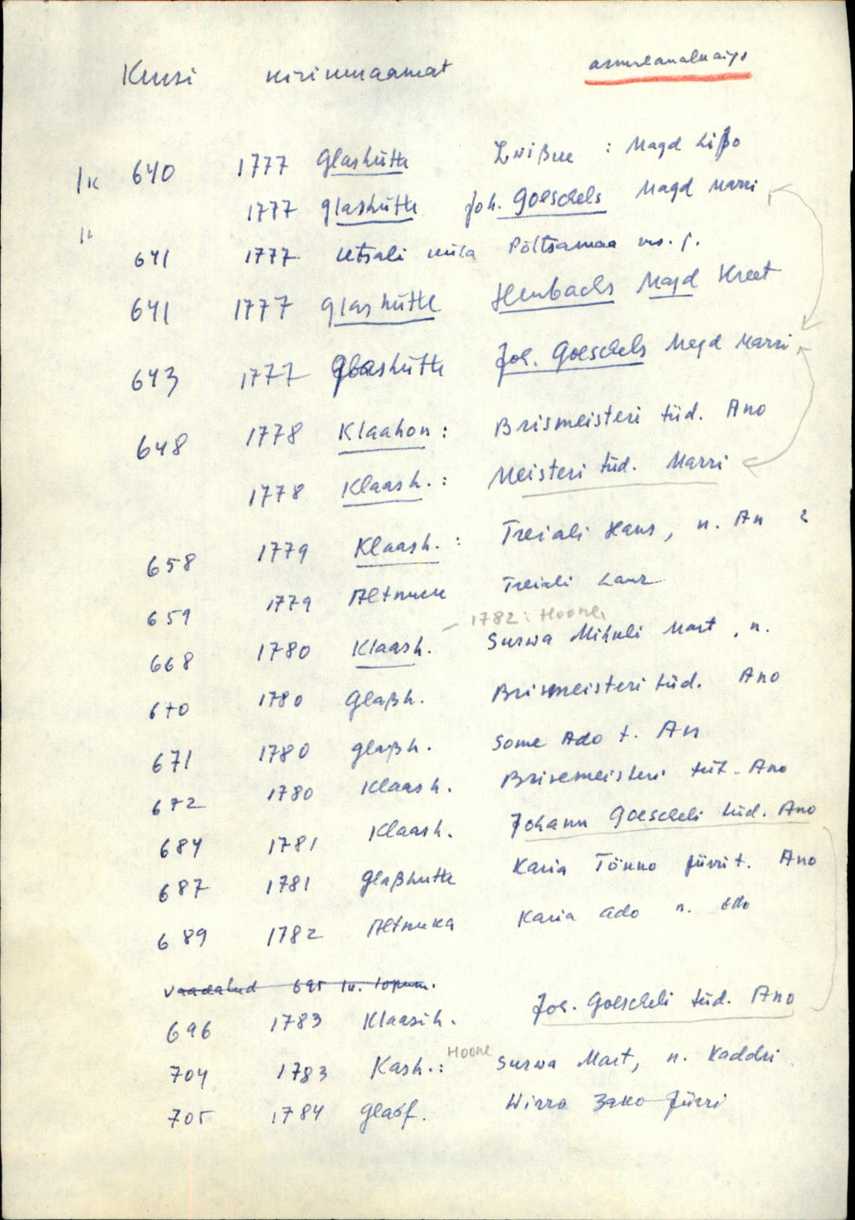 Kursi kirikuraamat
lk 640 1777 Glashütte : Magd Lißo
1777 glashütte Joh. Goeschels Magd Marri
641 1777 Utsali küla Põltsamaa
641 1777 glashütte Heubachs Magd Kreet
643 1777 Glashütte Joh. Goeschels Magd Marri
648 1778 Klaahon : Brismeisteri tüd. Ano
1778 Klaash. : Meisteri tüd. Marri
658 1779 Klaash. : Treiali Hans, n. An ?
659 1779 Treiali Laur
1782: Hoone
668 1780 Klaash. Surwa Mihkli Mart, n.
670 1780 Glaßh. Brismeisteri tüd. Ano
671 1780 glaßh. Some Ado t. An
672 1780 Klaash. Brisemeisteri tüt. Ano
684 1781 Klaash. Johann Goescheli tüd. Ano
687 1781 glaßhutte Karia Tõnno Jürri t. Ano
689 1782 Karia Ado n. Edo
vaadatud 695 lk. lõpuni.
696 1783 Klaasih. Joh. Goescheli tüd. Ano
704 1783 Kash.: Hoone Surwa Mart, n. Kaddri
705 1784 Jürri